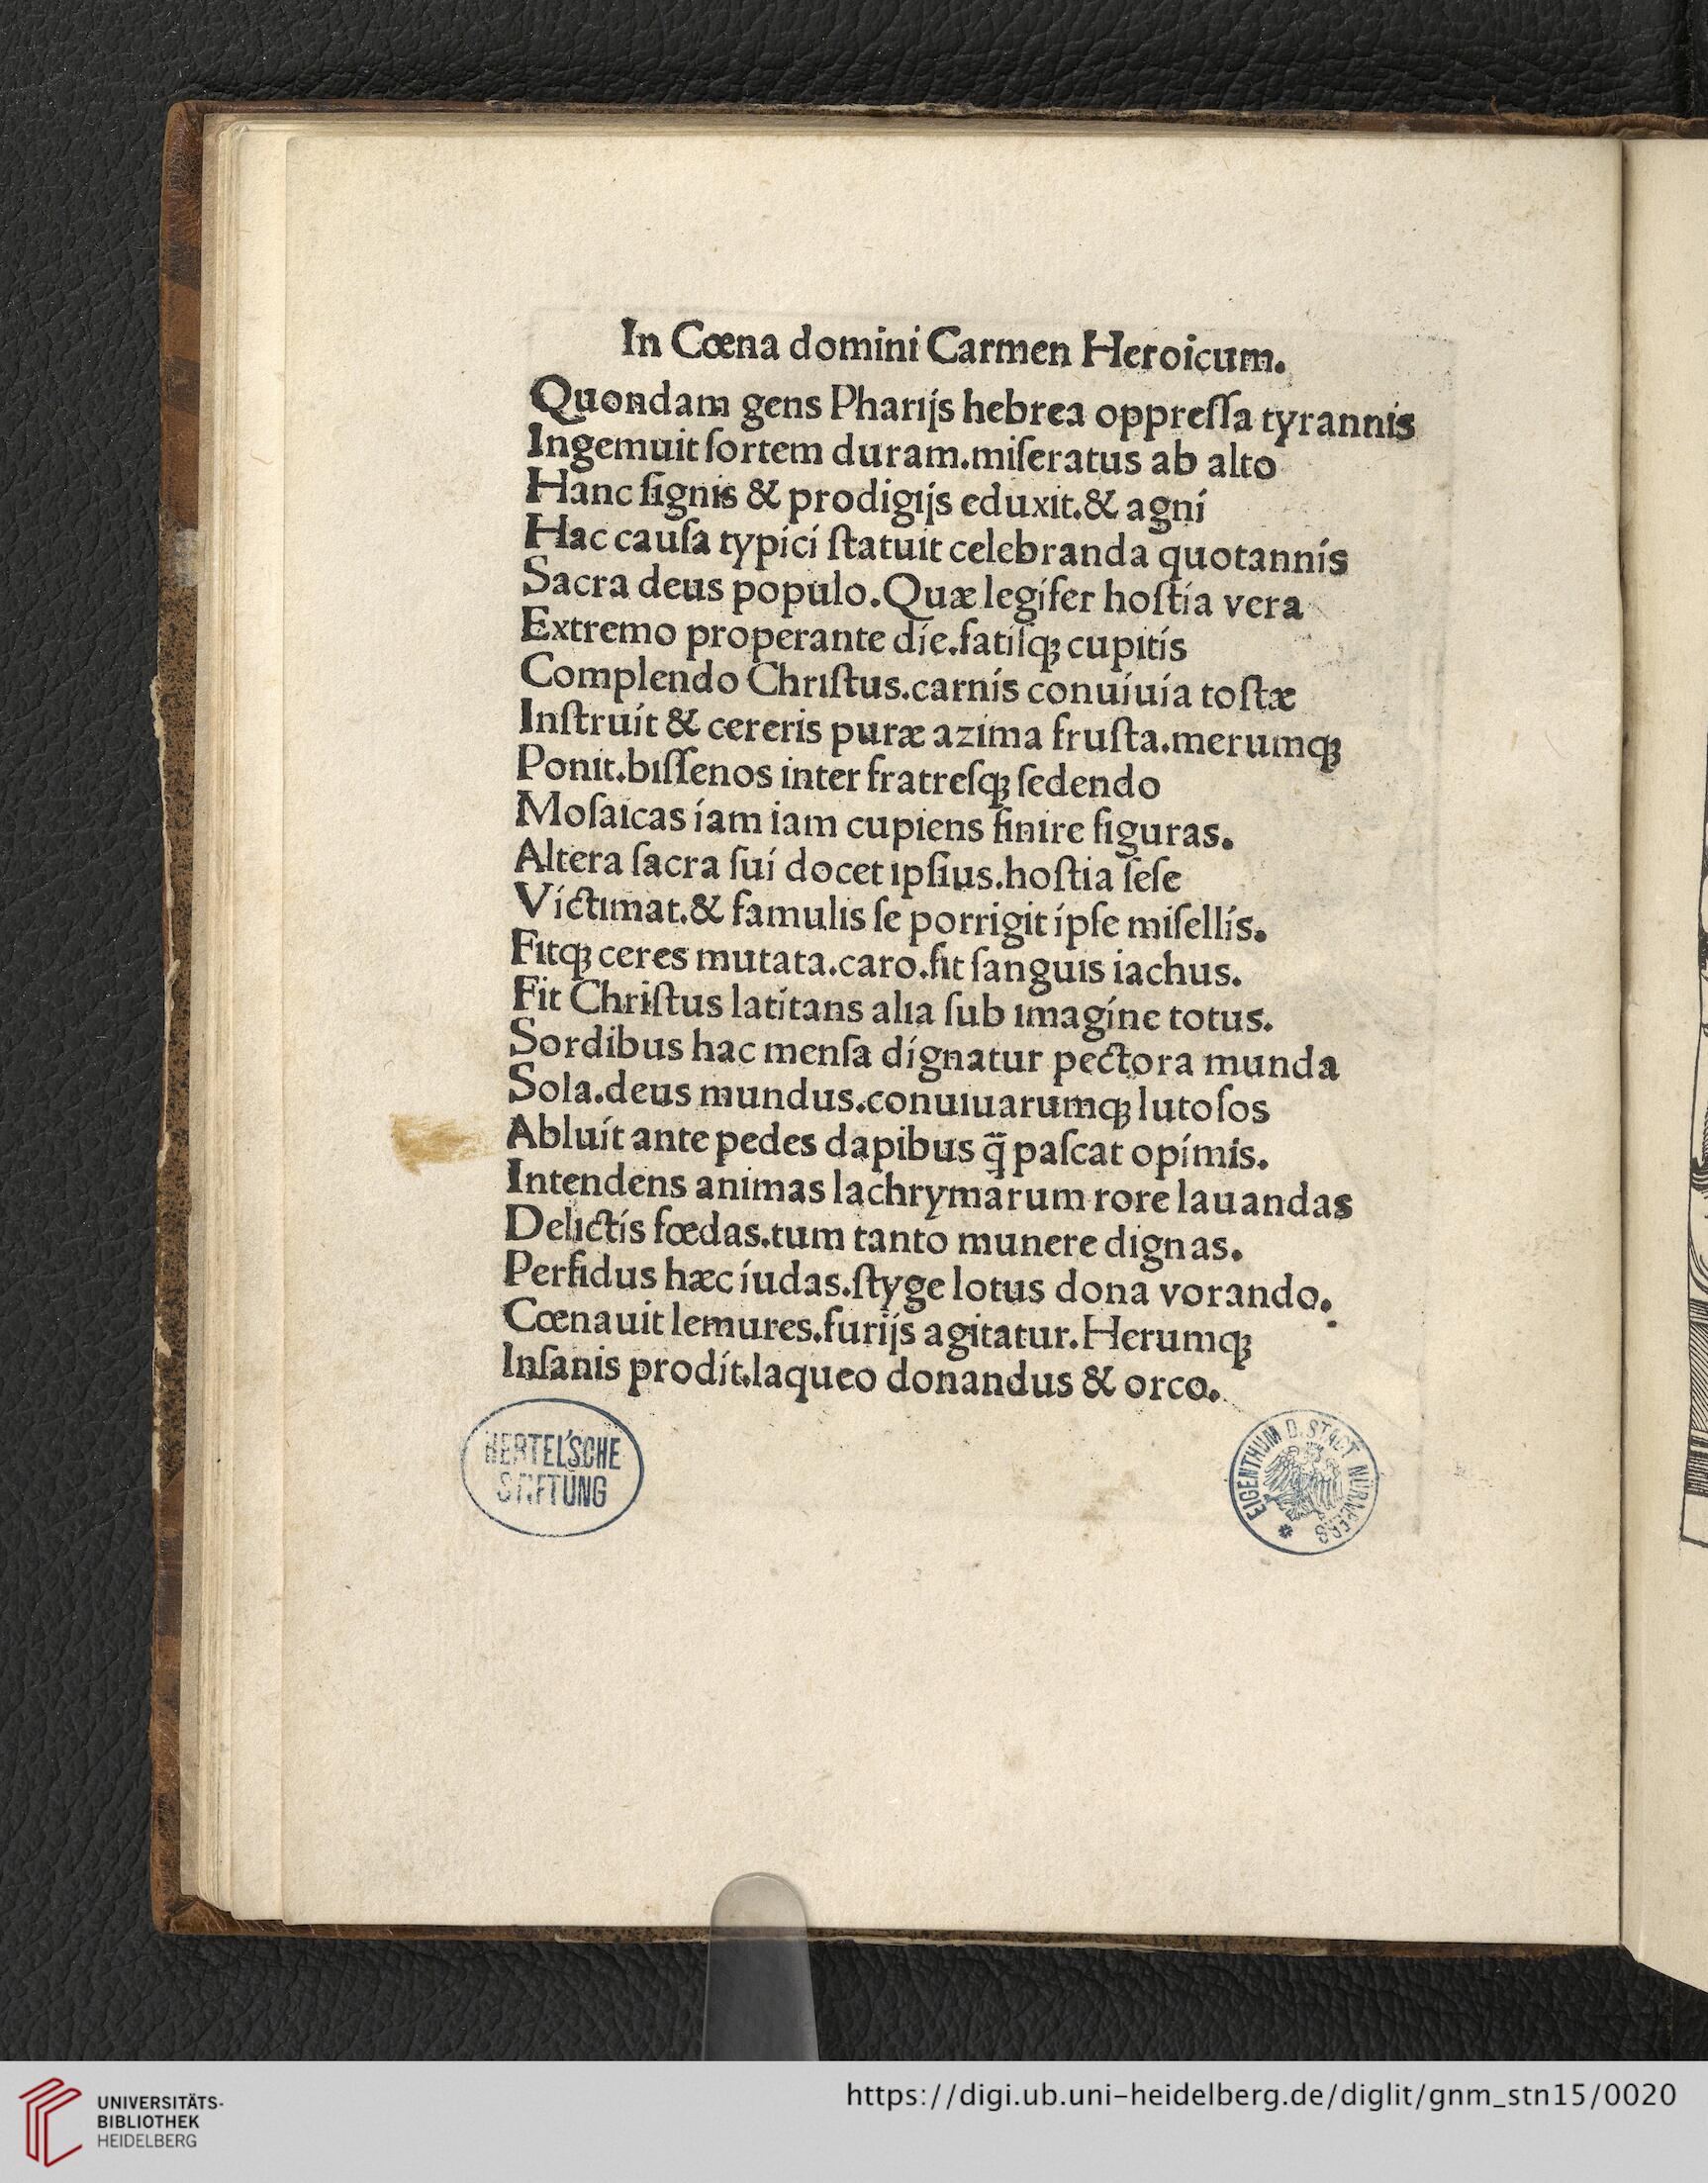 In Cœna domini Carmen Heroicum.
Quondam gens Pharijs hebrea oppreſſa tyrannis
Ingemuit ſortem duram.miſeratus ab alto
Hanc ſignis & prodigijs eduxit.& agni
Hac cauſa typici ſtatuit celebranda quotannis
Sacra deus populo.Quæ legifer hoſtia vera
Extremo properante die.fatiſqꝫ cupitis
Complendo Chriſtus.carnis conuiuia toſtæ
Inſtruit & cereris puræ azima fruſta.merumqꝫ
Ponit.biſſenos inter fratreſqꝫ ſedendo
Moſaicas iam iam cupiens finire figuras.
Altera ſacra ſui docet ipſius.hoſtia ſeſe
Victimat.& famulis ſe porrigit ipſe miſellis.
Fitqꝫ ceres mutata.caro.fit ſanguis iachus.
Fit Chriſtus latitans alia ſub imagine totus.
Sordibus hac menſa dignatur pectora munda
Sola.deus mundus.conuiuarumqꝫ lutoſos
Abluit ante pedes dapibus q̄ paſcat opimis.
Intendens animas lachrymarum rore lauandas
Delictis fœdas.tum tanto munere dignas.
Perfidus hæc iudas.ſtyge lotus dona vorando.
Cœnauit lemures.furijs agitatur.Herumqꝫ
Inſanis prodit.laqueo donandus & orco.
HERTEL'SCHE
STIFTUNG
EIGENTHUM D. STADT NÜRNBERG *
UNIVERSITÄTS-
BIBLIOTHEK
HEIDELBERG
https://digi.ub.uni-heidelberg.de/diglit/gnm_stn15/0020